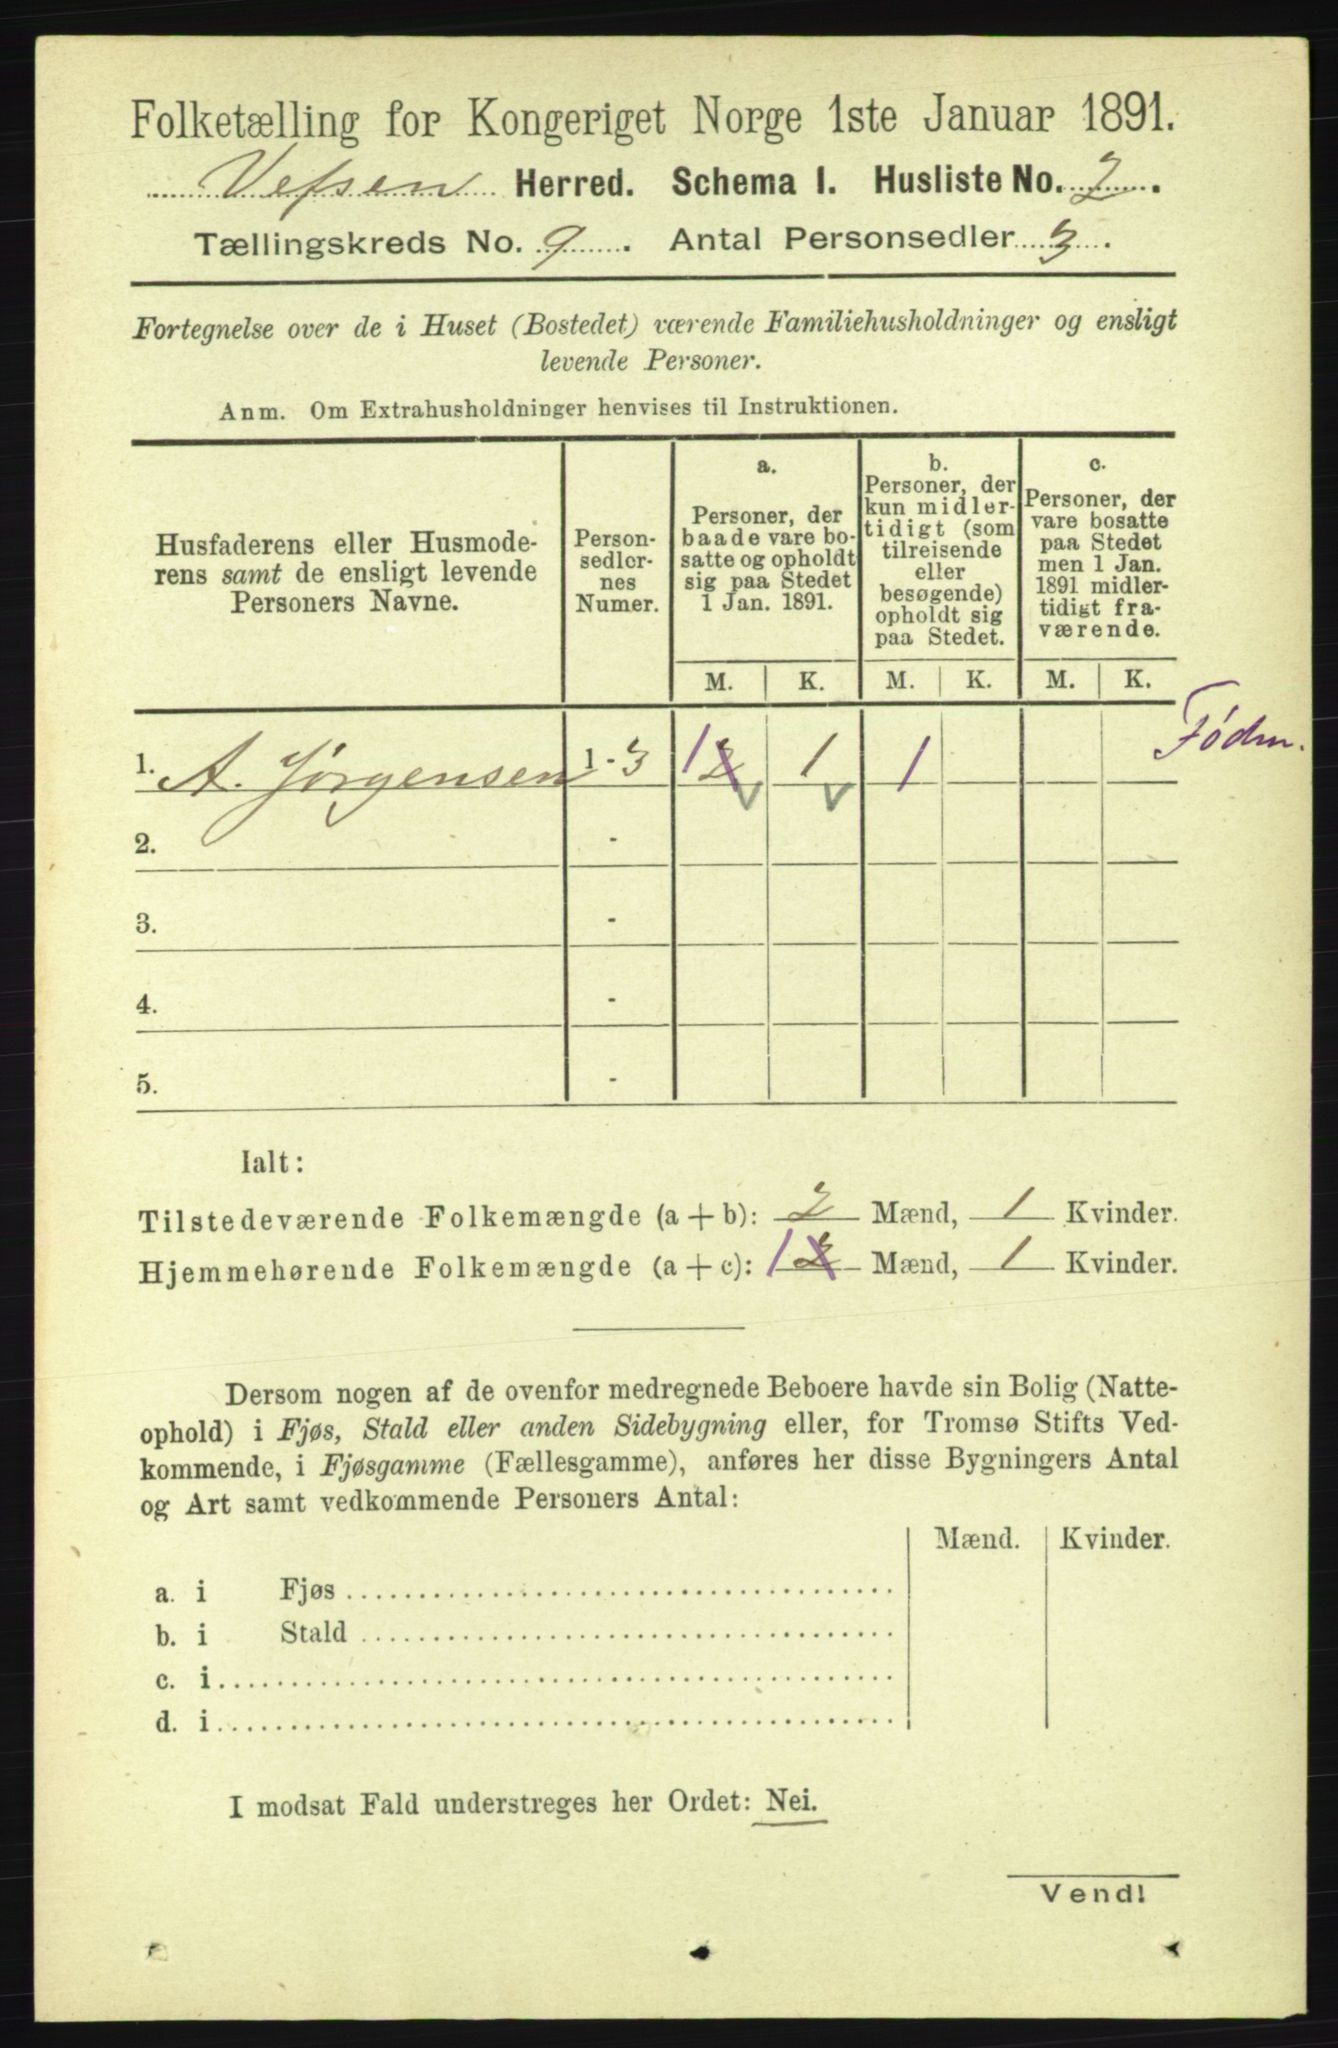 Folketælling for Kongeriget Norge 1ste Januar 1891.
Vefsen Herred. Schema I. Husliste No. 2.
Tællingskreds No. 9. Antal Personsedler 3.
Fortegnelse over de i Huset (Bostedet) værende Familiehusholdninger og ensligt
levende Personer.
Anm. Om Extrahusholdninger henvises til Instruktionen.
Husfaderens eller Husmode-
rens samt de ensligt levende
Personers Navne.
Person-
sedler-
nes
Numer.
a.
Personer, der
baade vare bo-
satte og opholdt
sig paa Stedet
1 Jan. 1891.
b.
Personer, der
kun midler-
tidigt (som
tilreisende
eller
besøgende)
opholdt sig
paa Stedet.
c.
Personer, der
vare bosatte
paa Stedet
men 1 Jan.
1891 midler-
tidigt fra-
værende.
M. K. M. K. M. K.
1. A. Jørgensen 1-3 1 2 1 1
2. -
3. -
4. -
5. -
Ialt:
Tilstedeværende Folkemængde (a + b): 2 Mænd, 1 Kvinder.
Hjemmehørende Folkemængde (a + c): 1 2 Mænd, 1 Kvinder.
Dersom nogen af de ovenfor medregnede Beboere havde sin Bolig (Natte-
ophold) i Fjøs, Stald eller anden Sidebygning eller, for Tromsø Stifts Ved-
kommende, i Fjøsgamme (Fællesgamme), anføres her disse Bygningers Antal
og Art samt vedkommende Personers Antal:
Mænd. Kvinder.
a. i Fjøs
b. i Stald
c. i
d. i
I modsat Fald understreges her Ordet: Nei.
Vend!